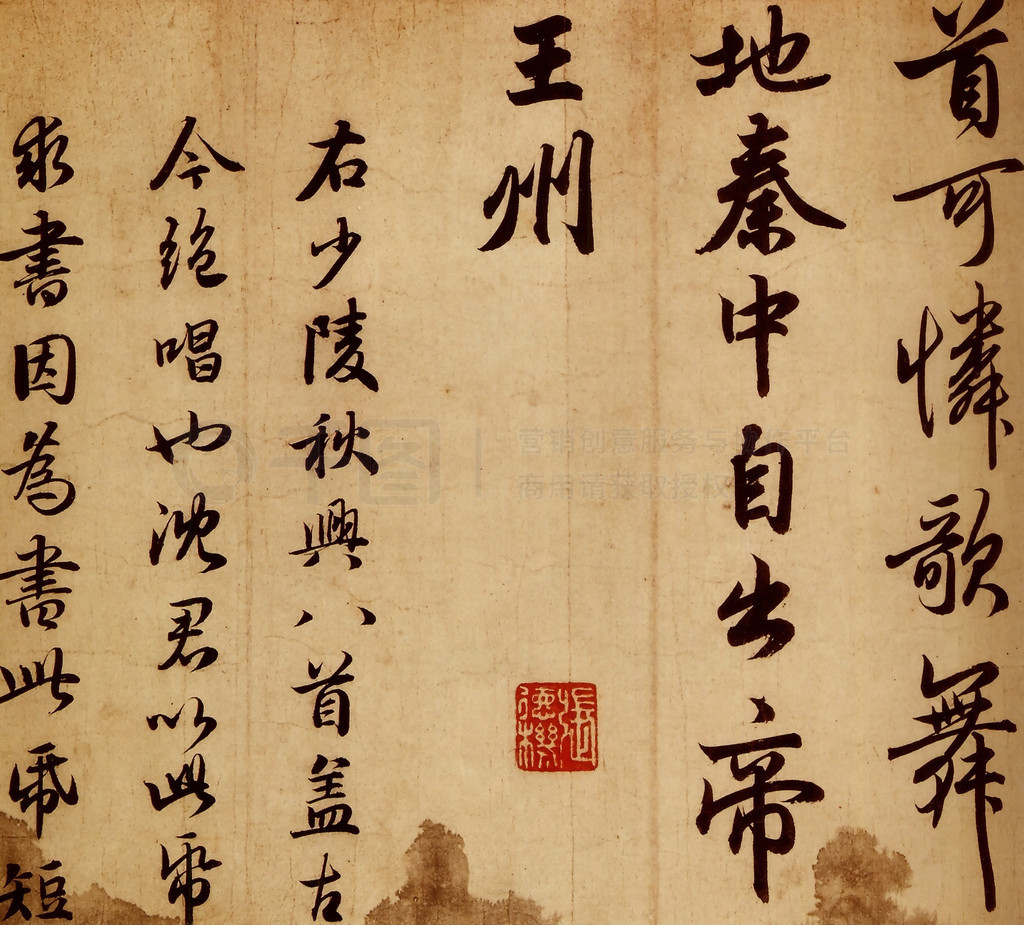 首可憐歌舞
地秦中自出帝
王州
右少陵秋興八首盖古
今絶唱也沈君以此帋
求書因為書此帋短
張氏德機
千图
营销创意服务与平台
商用请获取授权